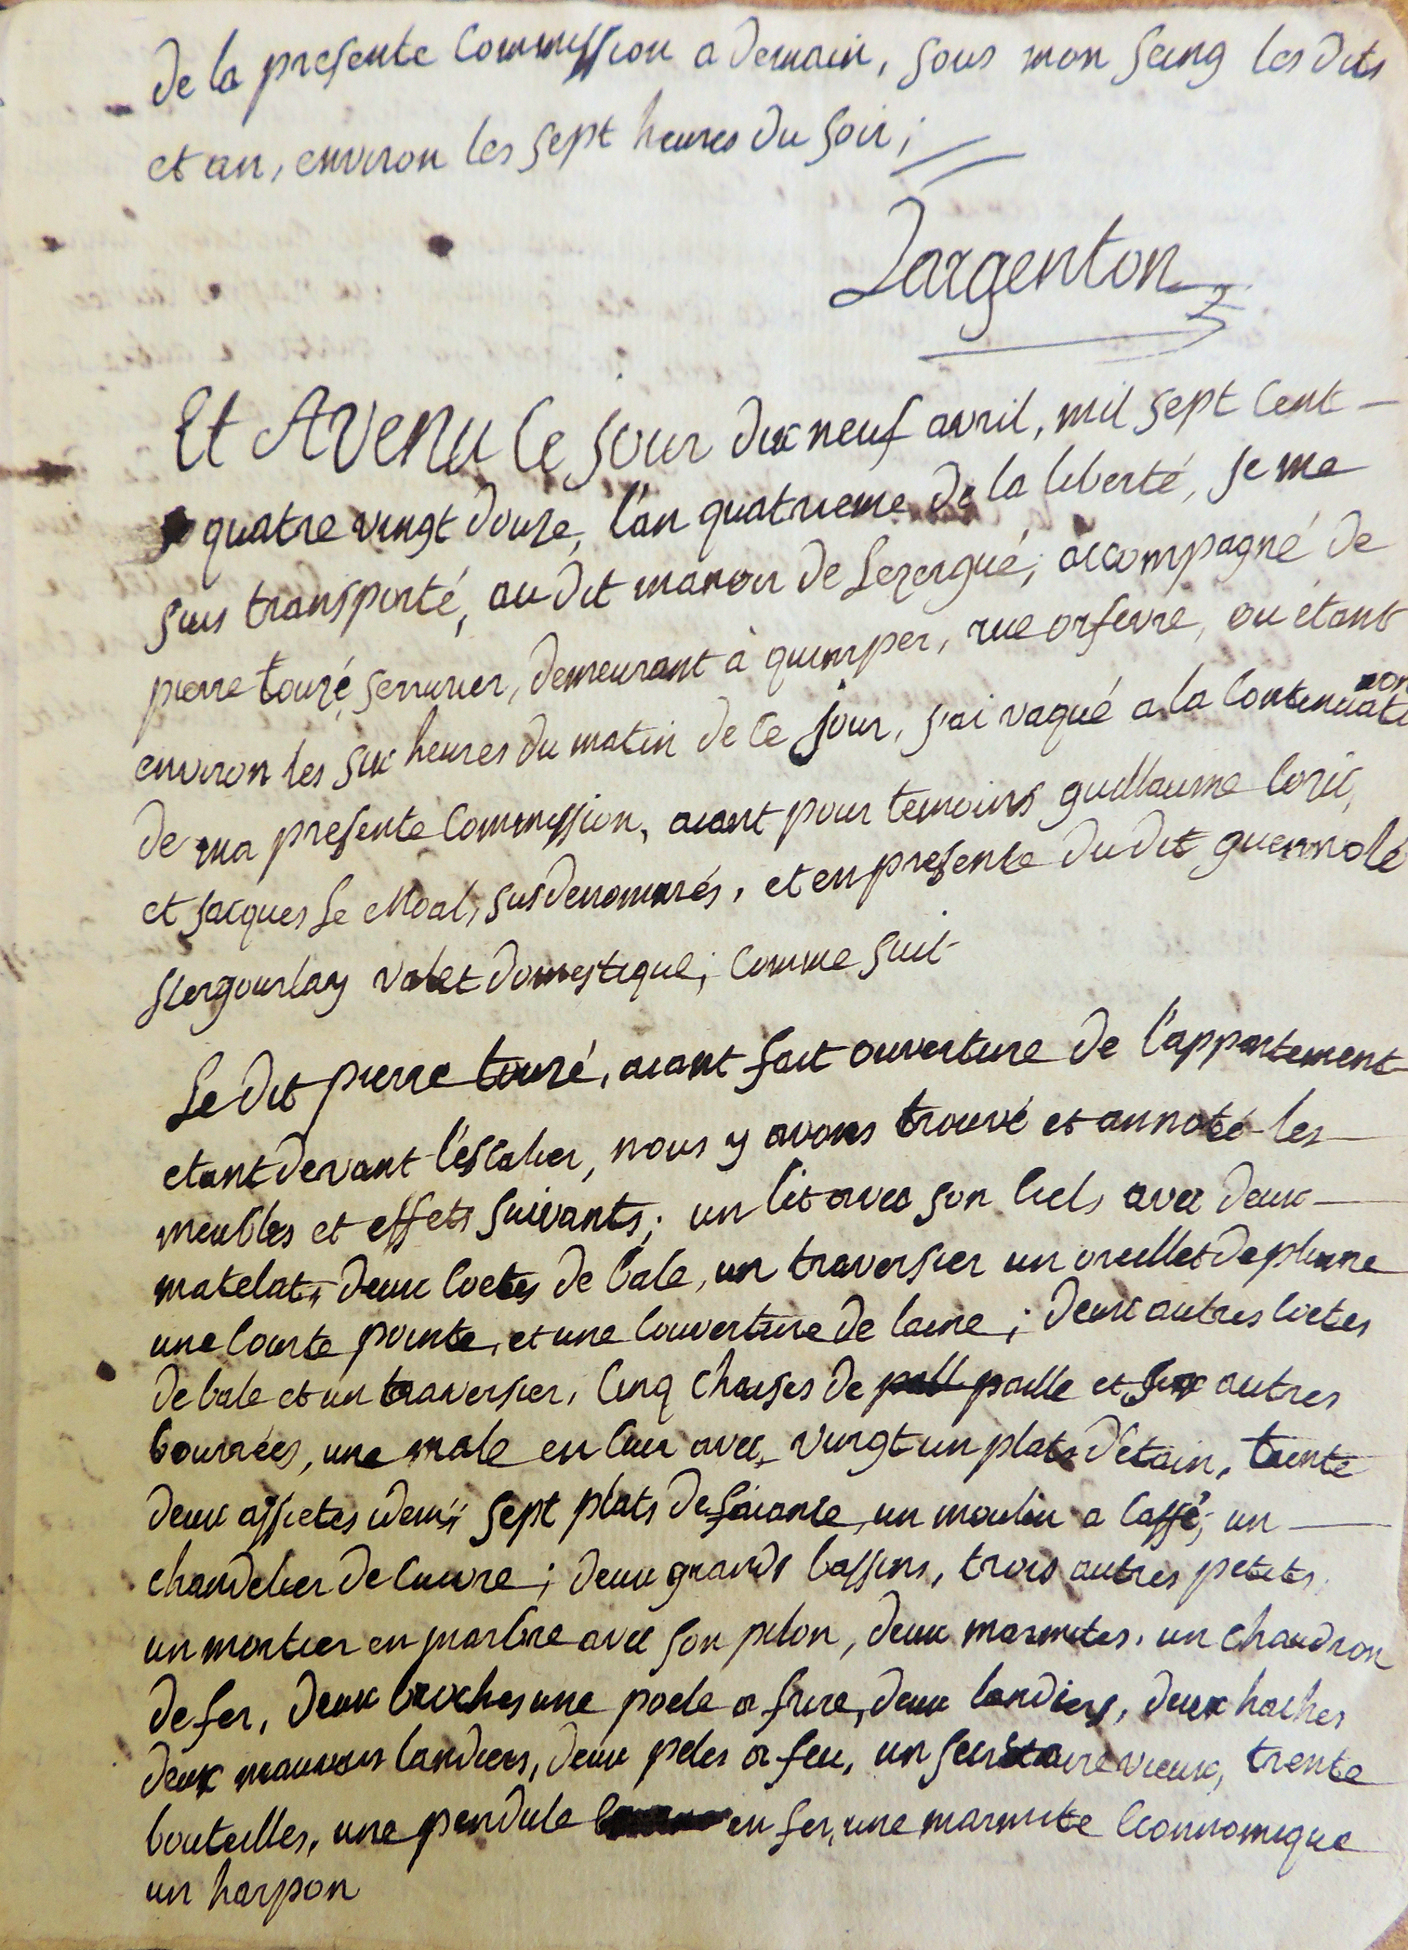 de la presente Commission a demain, sous mon seing les dits
et an, environ les sept heures du soir;
Dargenton
Et Avenu Ce jour dix neuf avril, mil sept Cent
quatre vingt douze, l'an quatrieme de la liberté, je me
suis transporté, au dit manoir de Lezergué, accompagné de
pierre touzé, serrurier, demeurant à quimper, rue orfevre, ou étant
environ les six heures du matin de ce jour, j'ai vaqué a la Continuation
de ma presente Commission, aiant pour temoins guillaume Coric,
et jacques Le Moal, susdenommés, et en presente du dit guennolé
Kergourlay valet domestique; Comme suit
Le dit pierre touzé, aiant fait ouverture de l'appartement
etant devant l'escalier, nous y avons trouvé et annoté les
meubles et effets suivants; un lit avec son Ciels avec deux
matelats, deux Coetes de bale, un traversier un oreillet de plume
une Courte pointe, et une Couverture de laine; deux autres Coetes
de bale et un traversier, Cinq chaises de paille et six autres
bourrées, une male en Cuir avec vingt un plats d'étain, trente
deux assietes idem; sept plats de faiance, un moulin a Caffé, un
chandelier de Cuivre; deux grands bassins, trois autres petits,
un mortier en marbre avec son pilon, deux marmites, un chaudron
de fer, deux broches une poele a frire, deux landiers, deux haches
deux mauvais landiers, deux peles a feu, un secretaire vieux, trente
bouteilles, une pendule en fer, une marmite Economique
un harpon